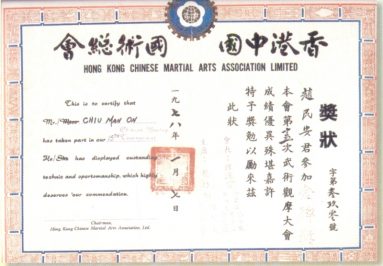 會總術國 國中港香
HONG KONG CHINESE MARTIAL ARTS ASSOCIATION LIMITED
獎狀
字第叁玖零號
趙民安君參加
本會第五次武術觀摩大會
成績優異殊堪嘉許
特予獎勉以勵來茲
此狀
一九七八年一月七日
This is to certify that
Mr./Miss CHIU MAN ON
has taken part in our
He/She has displayed oustanding
technic and sportsmanship, which highly
deserves our commendation.
Chairman,
Hong Kong Chinese Martial Arts Association, Ltd.